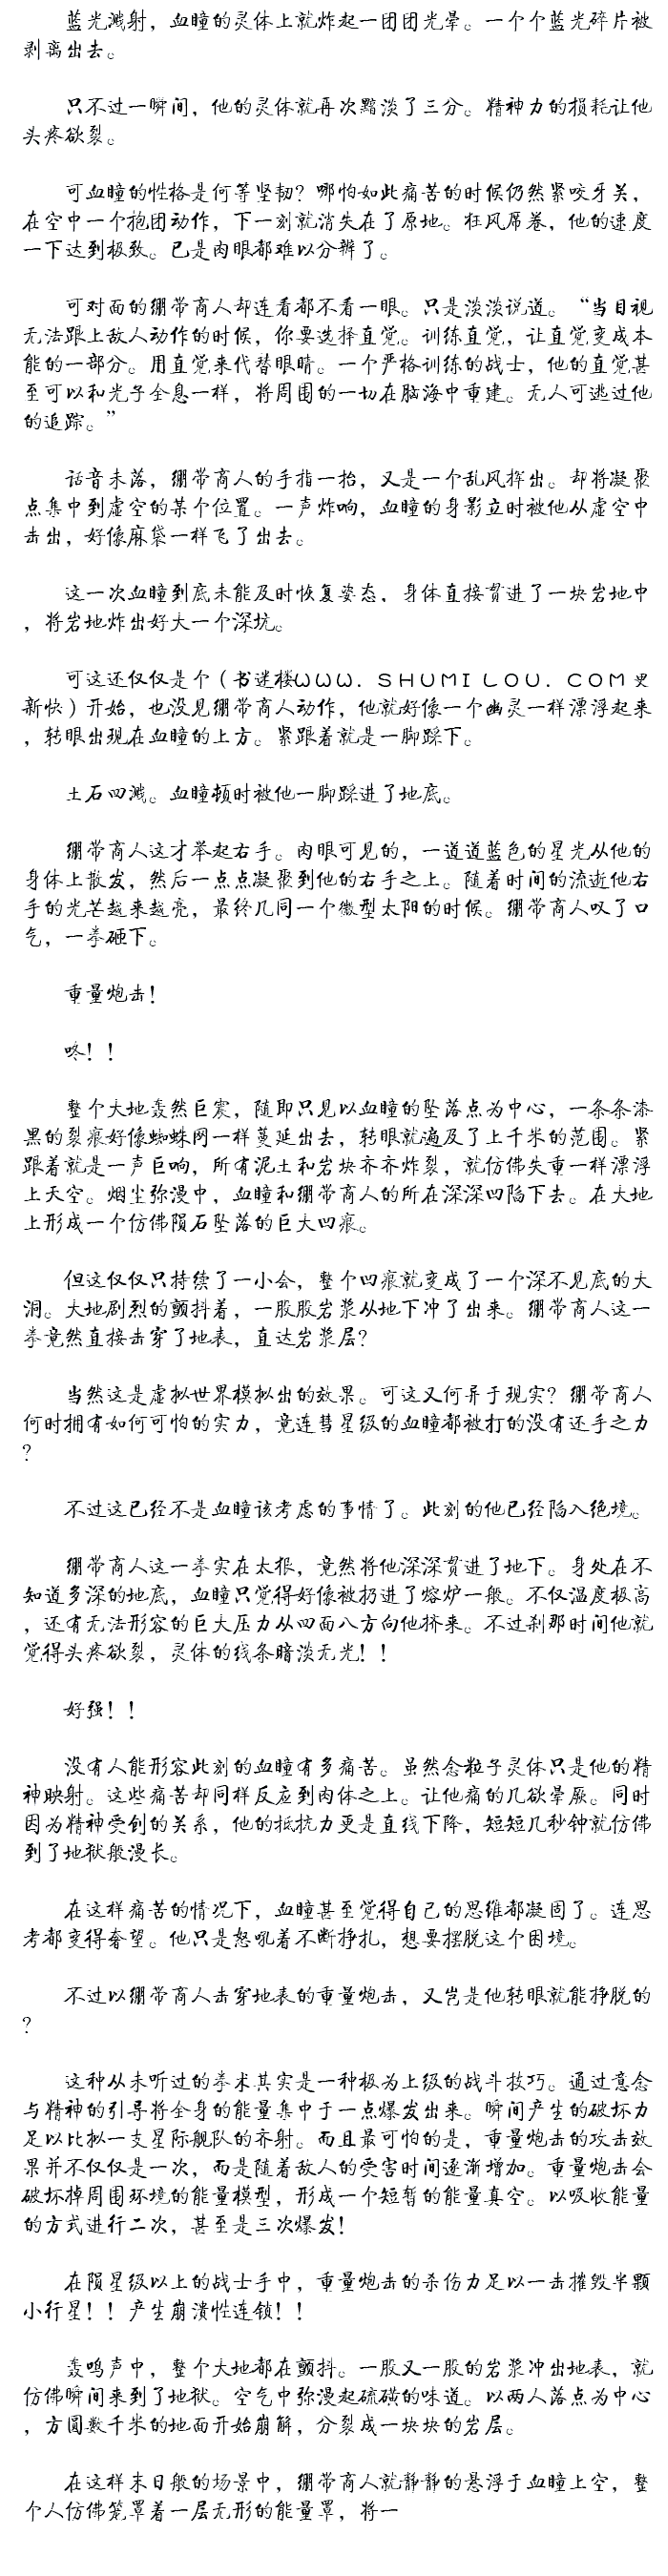 蓝光溅射，血瞳的灵体上就炸起一团团光晕。一个个蓝光碎片被
剥离出去。
只不过一瞬间，他的灵体就再次黯淡了三分。精神力的损耗让他
头疼欲裂。
可血瞳的性格是何等坚韧？哪怕如此痛苦的时候仍然紧咬牙关，
在空中一个抱团动作，下一刻就消失在了原地。狂风席卷，他的速度
一下达到极致。已是肉眼都难以分辨了。
可对面的绷带商人却连看都不看一眼。只是淡淡说道。“当目视
无法跟上敌人动作的时候，你要选择直觉。训练直觉，让直觉变成本
能的一部分。用直觉来代替眼睛。一个严格训练的战士，他的直觉甚
至可以和光子全息一样，将周围的一切在脑海中重建。无人可逃过他
的追踪。”
话音未落，绷带商人的手指一抬，又是一个乱风挥出。却将凝聚
点集中到虚空的某个位置。一声炸响，血瞳的身影立时被他从虚空中
击出，好像麻袋一样飞了出去。
这一次血瞳到底未能及时恢复姿态，身体直接贯进了一块岩地中
，将岩地炸出好大一个深坑。
可这还仅仅是个（书迷楼ＷＷＷ．ＳＨＵＭＩＬＯＵ．ＣＯＭ更
新快）开始，也没见绷带商人动作，他就好像一个幽灵一样漂浮起来
，转眼出现在血瞳的上方。紧跟着就是一脚踩下。
土石四溅。血瞳顿时被他一脚踩进了地底。
绷带商人这才举起右手。肉眼可见的，一道道蓝色的星光从他的
身体上散发，然后一点点凝聚到他的右手之上。随着时间的流逝他右
手的光芒越来越亮，最终几同一个微型太阳的时候。绷带商人叹了口
气，一拳砸下。
重量炮击！
咚！！
整个大地轰然巨震，随即只见以血瞳的坠落点为中心，一条条漆
黑的裂痕好像蜘蛛网一样蔓延出去，转眼就遍及了上千米的范围。紧
跟着就是一声巨响，所有泥土和岩块齐齐炸裂，就仿佛失重一样漂浮
上天空。烟尘弥漫中，血瞳和绷带商人的所在深深凹陷下去。在大地
上形成一个仿佛陨石坠落的巨大凹痕。
但这仅仅只持续了一小会，整个凹痕就变成了一个深不见底的大
洞。大地剧烈的颤抖着，一股股岩浆从地下冲了出来。绷带商人这一
拳竟然直接击穿了地表，直达岩浆层？
当然这是虚拟世界模拟出的效果。可这又何异于现实？绷带商人
何时拥有如何可怕的实力，竟连彗星级的血瞳都被打的没有还手之力
？
不过这已经不是血瞳该考虑的事情了。此刻的他已经陷入绝境。
绷带商人这一拳实在太狠，竟然将他深深贯进了地下。身处在不
知道多深的地底，血瞳只觉得好像被扔进了熔炉一般。不仅温度极高
，还有无法形容的巨大压力从四面八方向他挤来。不过刹那时间他就
觉得头疼欲裂，灵体的线条暗淡无光！！
好强！！
没有人能形容此刻的血瞳有多痛苦。虽然念粒子灵体只是他的精
神映射。这些痛苦却同样反应到肉体之上。让他痛的几欲晕厥。同时
因为精神受创的关系，他的抵抗力更是直线下降，短短几秒钟就仿佛
到了地狱般漫长。
在这样痛苦的情况下，血瞳甚至觉得自己的思维都凝固了。连思
考都变得奢望。他只是怒吼着不断挣扎，想要摆脱这个困境。
不过以绷带商人击穿地表的重量炮击，又岂是他转眼就能挣脱的
？
这种从未听过的拳术其实是一种极为上级的战斗技巧。通过意念
与精神的引导将全身的能量集中于一点爆发出来。瞬间产生的破坏力
足以比拟一支星际舰队的齐射。而且最可怕的是，重量炮击的攻击效
果并不仅仅是一次，而是随着敌人的受害时间逐渐增加。重量炮击会
破坏掉周围环境的能量模型，形成一个短暂的能量真空。以吸收能量
的方式进行二次，甚至是三次爆发！
在陨星级以上的战士手中，重量炮击的杀伤力足以一击摧毁半颗
小行星！！产生崩溃性连锁！！
轰鸣声中，整个大地都在颤抖。一股又一股的岩浆冲出地表，就
仿佛瞬间来到了地狱。空气中弥漫起硫磺的味道。以两人落点为中心
，方圆数千米的地面开始崩解，分裂成一块块的岩层。
在这样末日般的场景中，绷带商人就静静的悬浮于血瞳上空，整
个人仿佛笼罩着一层无形的能量罩，将一